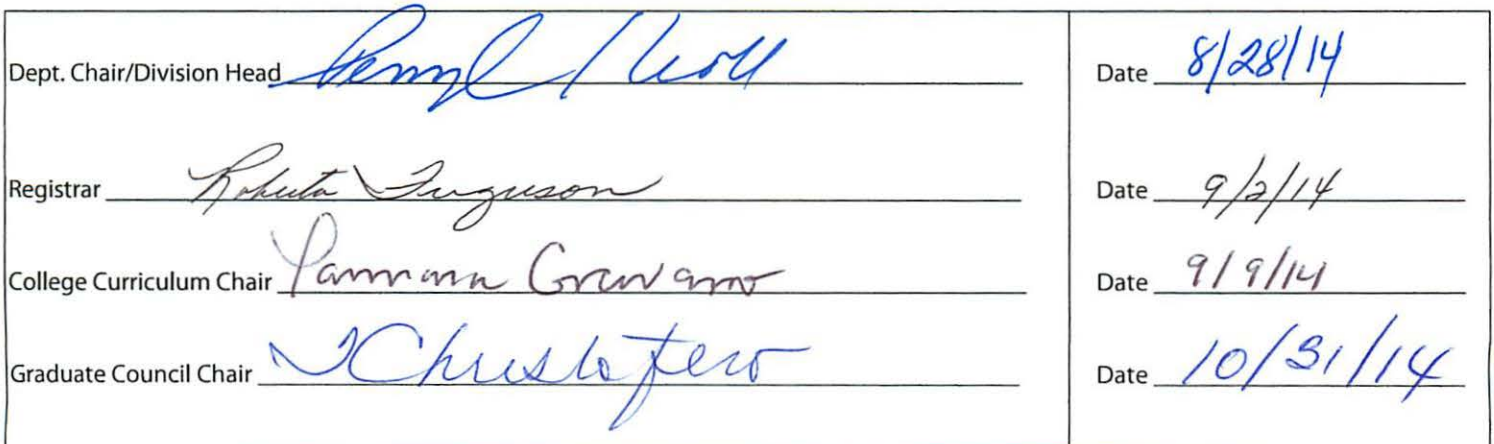 Dept. Chair/Division Head Date 8/28/14
Registrar Roberta Ferguson Date 9/2/14
College Curriculum Chair Date 9/9/14
Graduate Council Chair Christofero Date 10/31/14